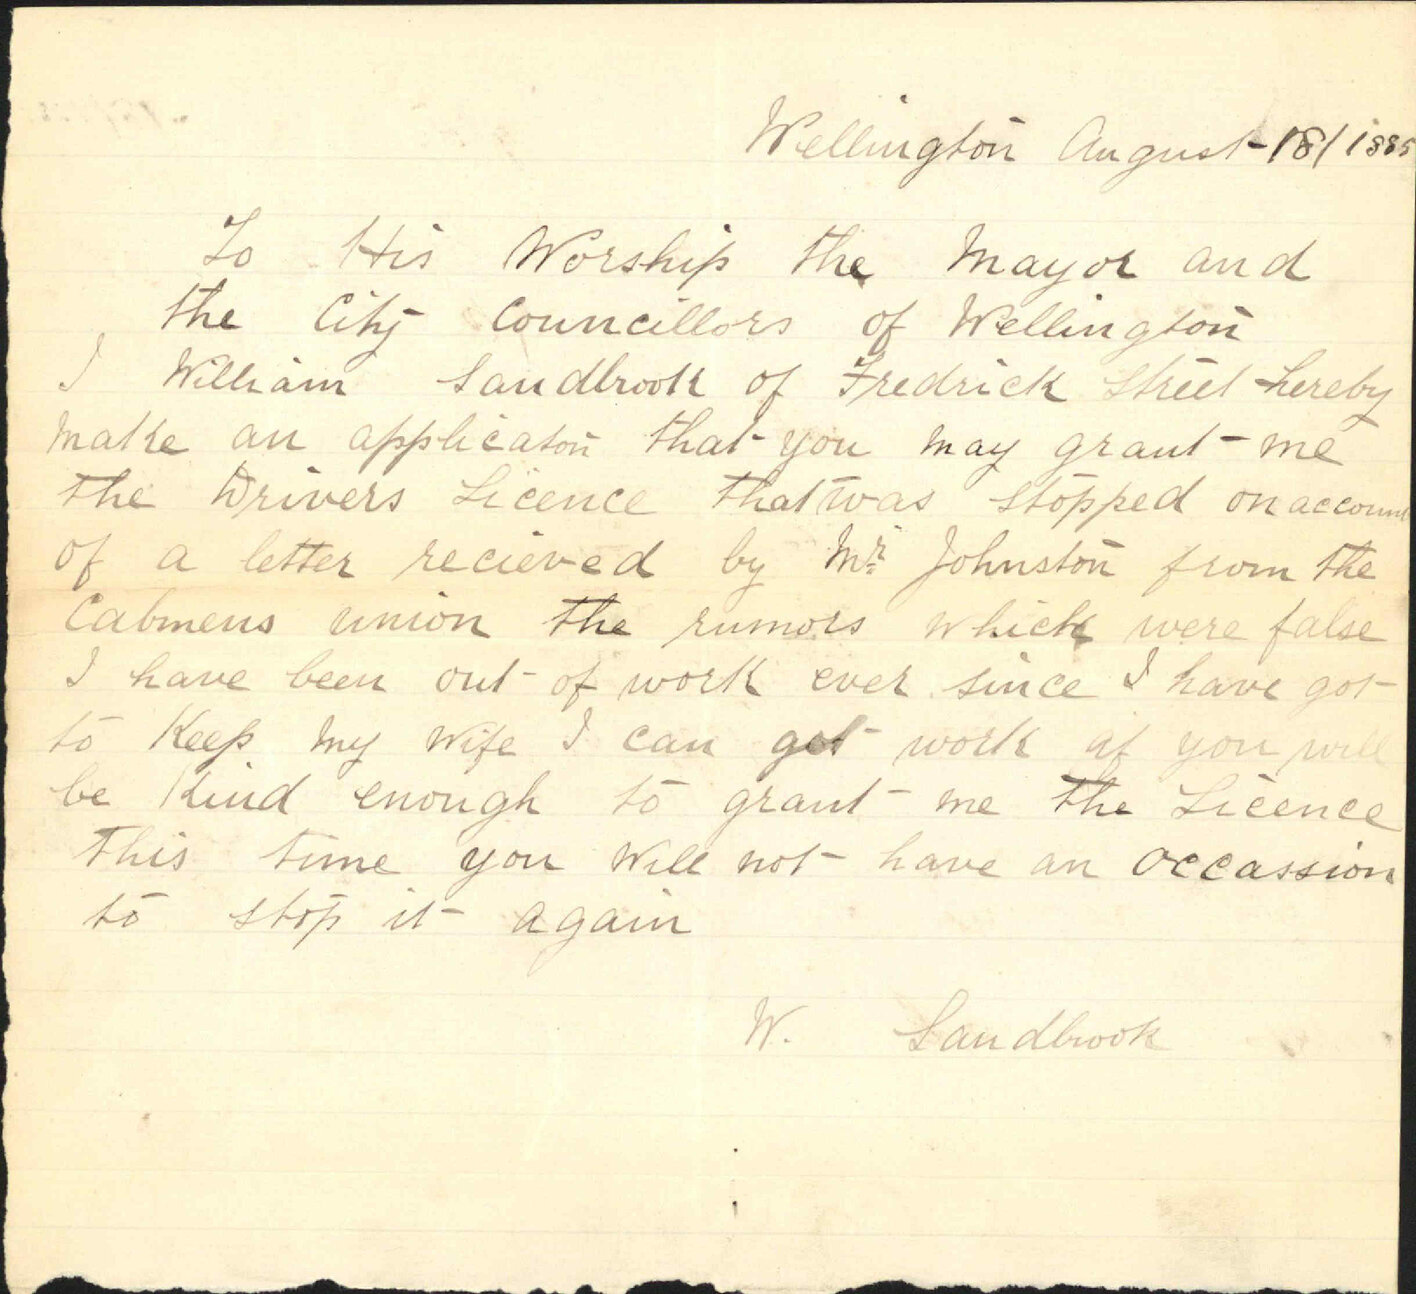 Wellington August 18/1885
To His Worship the Mayor and
the City Councillors of Wellington
I William Sandbrook of Fredrick Street hereby
make an applicaton that you may grant me
the Drivers Licence that was stopped on account
of a letter recieved by Mr Johnston from the
Cabmens union the rumors which were false
I have been out of work ever since I have got
to Keep my wife I can get work if you will
be Kind enough to grant me the Licence
this time you will not have an occassion
to stop it again
W. Sandbrook